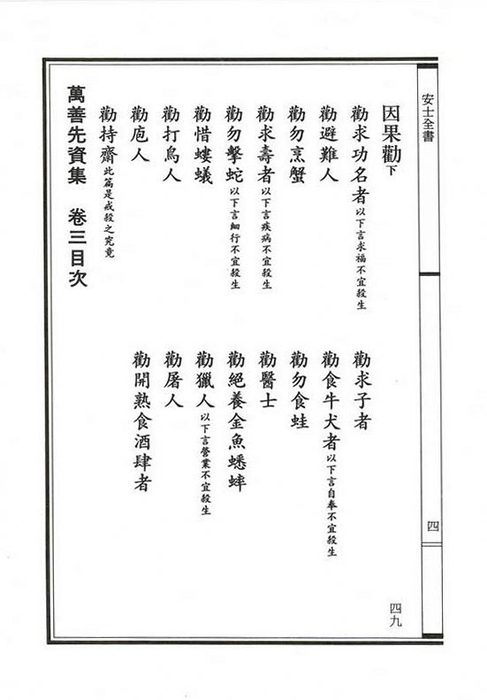 安士全書
四
四九
因果勸下
勸求功名者以下言求福不宜殺生　勸求子者
勸避難人　勸食牛犬者以下言自奉不宜殺生
勸勿烹蟹　勸勿食蛙
勸求壽者以下言疾病不宜殺生　勸醫士
勸勿擊蛇以下言細行不宜殺生　勸絕養金魚蟋蟀
勸惜螻蟻　勸獵人以下言營業不宜殺生
勸打鳥人　勸屠人
勸庖人　勸開熟食酒肆者
勸持齋此篇是戒殺之究竟
萬善先資集　卷三目次